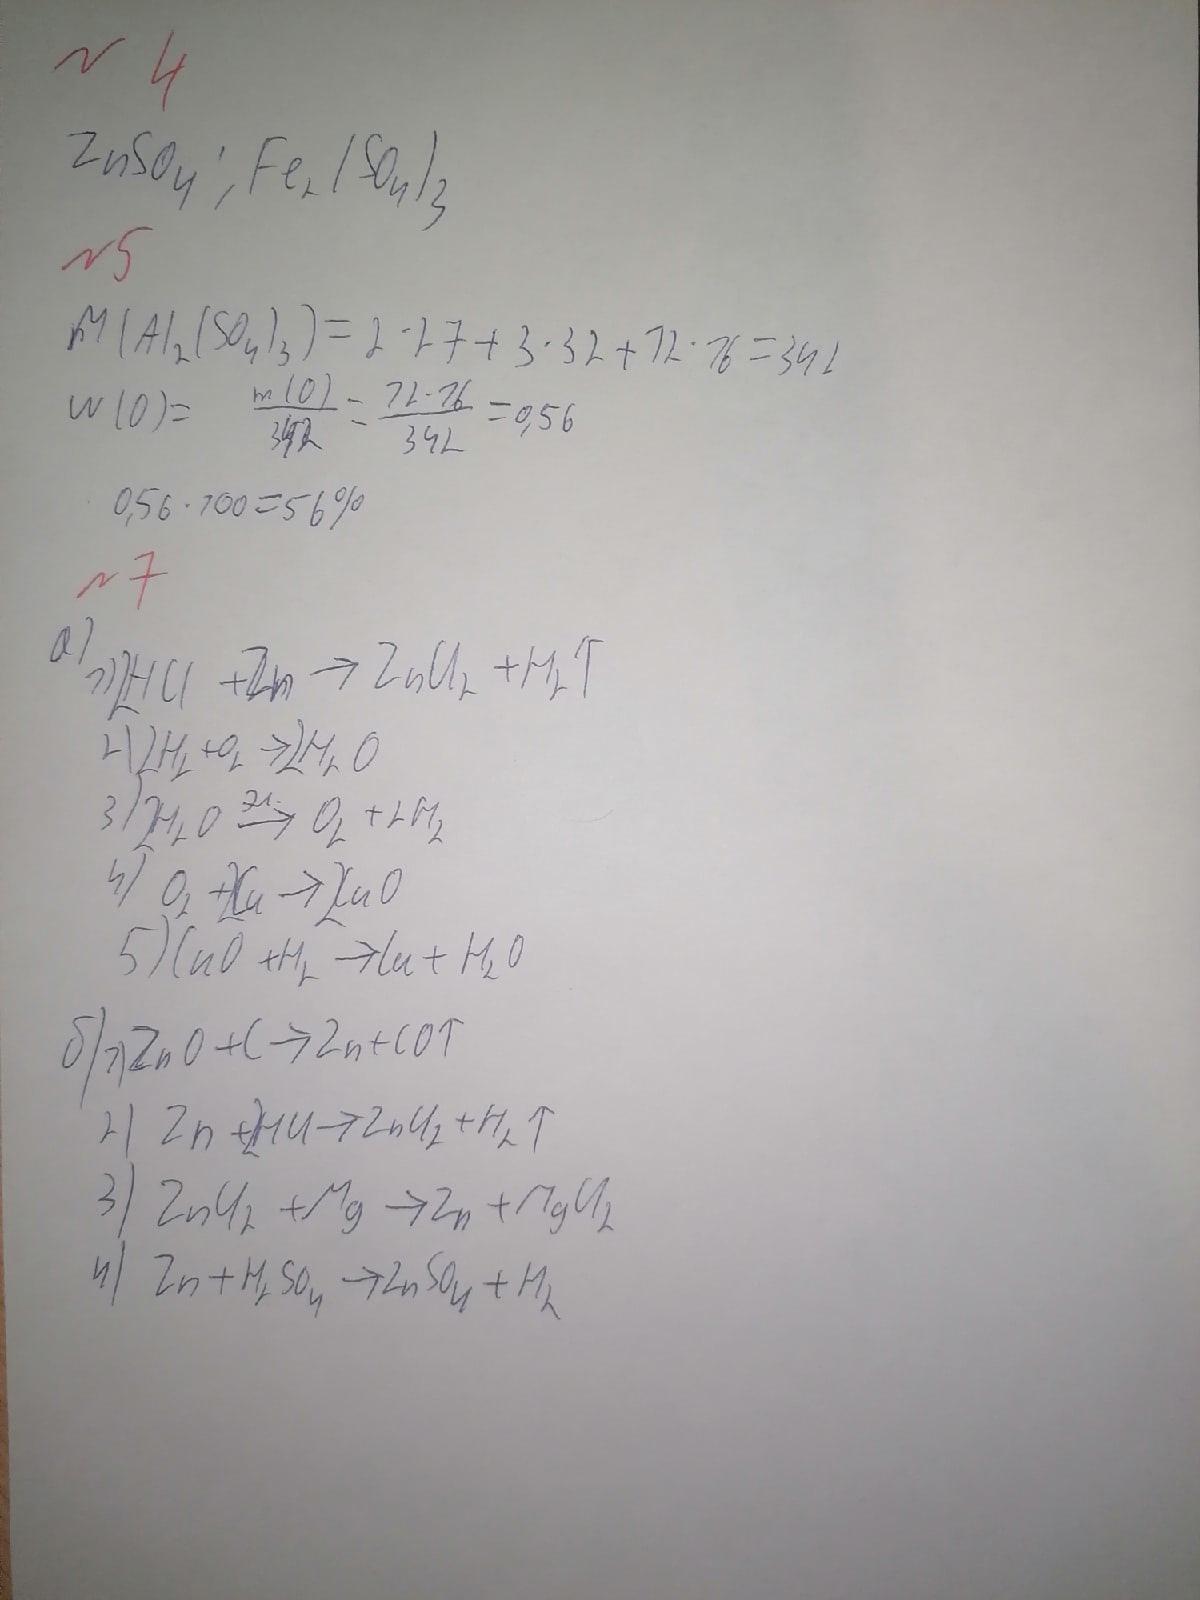 № 4
ZnSO₄; Fe₂(SO₄)₃
№5
M(Al₂(SO₄)₃) = 2·27 + 3·32 + 12·16 = 342
W(O) = m(O)/342 = 12·16/342 = 0,56
0,56·100 = 56%
№7
а)
1) 2HCl + Zn → ZnCl₂ + H₂↑
2) 2H₂ + O₂ → 2H₂O
3) 2H₂O эл.→ O₂ + 2H₂
4) O₂ + 2Cu → 2CuO
5) CuO + H₂ → Cu + H₂O
б) 1) ZnO + C → Zn + CO↑
2) Zn + 2HCl → ZnCl₂ + H₂↑
3) ZnCl₂ + Mg → Zn + MgCl₂
4) Zn + H₂SO₄ → ZnSO₄ + H₂